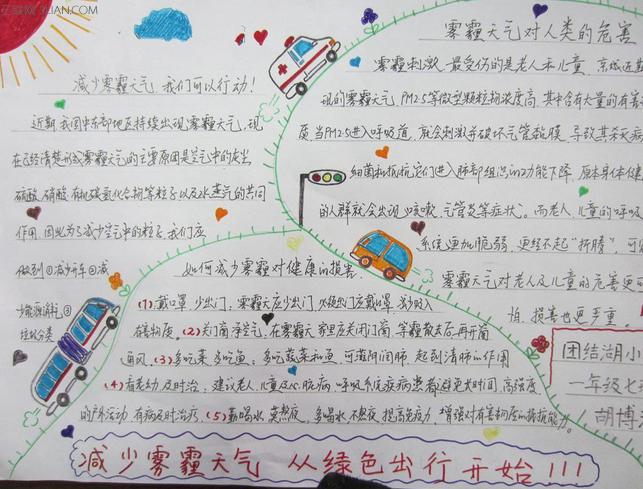 减少雾霾天气，我们可以行动！
近期我国中东部地区持续出现雾霾天气，现
在已经清楚形成雾霾天气的主要原因是空气中的灰尘、
硫酸、硝酸、有机碳氢化合物等粒子以及水蒸气的共同
作用，因此为了减少空气中的粒子，我们应
做到①减少开车②减
③
垃圾分类
雾霾天气对人类的危害
雾霾刺激，最受伤的是老人和儿童，京城近期
现的雾霾天气，PM2.5等微型颗粒物浓度高，其中含有大量的有害
质，当PM2.5进入呼吸道，就会刺激并破坏气管黏膜，导致其杀灭病
细菌和抵抗它们进入肺部组织的功能下降，原本身体健
的人群就会出现"咳嗽、气管炎等症状"。而老人、儿童的呼吸
系统更加脆弱，更经不起"折腾"，可
雾霾天气对老人及儿童的危害更可
怕，损害也更严重。
如何减少雾霾对健康的损害
(1)戴口罩，少出门：雾霾天应少出门，必须出门应戴口罩，减少吸入
有害物质。(2)关门窗，净空气，在雾霾天家里应关闭门窗，等霾散去后再开窗
通风。(3)多吃菜，多吃鱼：多吃蔬菜和鱼，可滋阴润肺，起到清肺的作用
(4)看老幼，及时治：建议老人、儿童及心脑病、呼吸系统疾病患者避免长时间、高强度
的户外活动，有病及时治疗。(5)勤喝水，莫熬夜，多喝水，不熬夜，提高免疫力，增强对有害物质的抵抗能力。
团结湖小
一年级七
胡博
减少雾霾天气 从绿色出行开始!!!